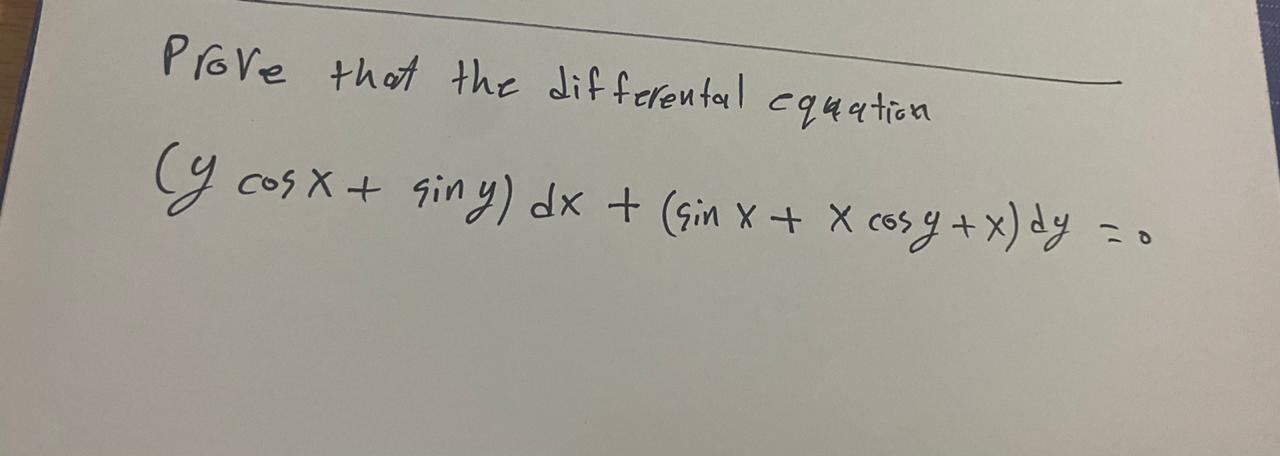 Prove that the differental equation
(y cos x + sin y) dx + (sin x + x cos y + x) dy = 0